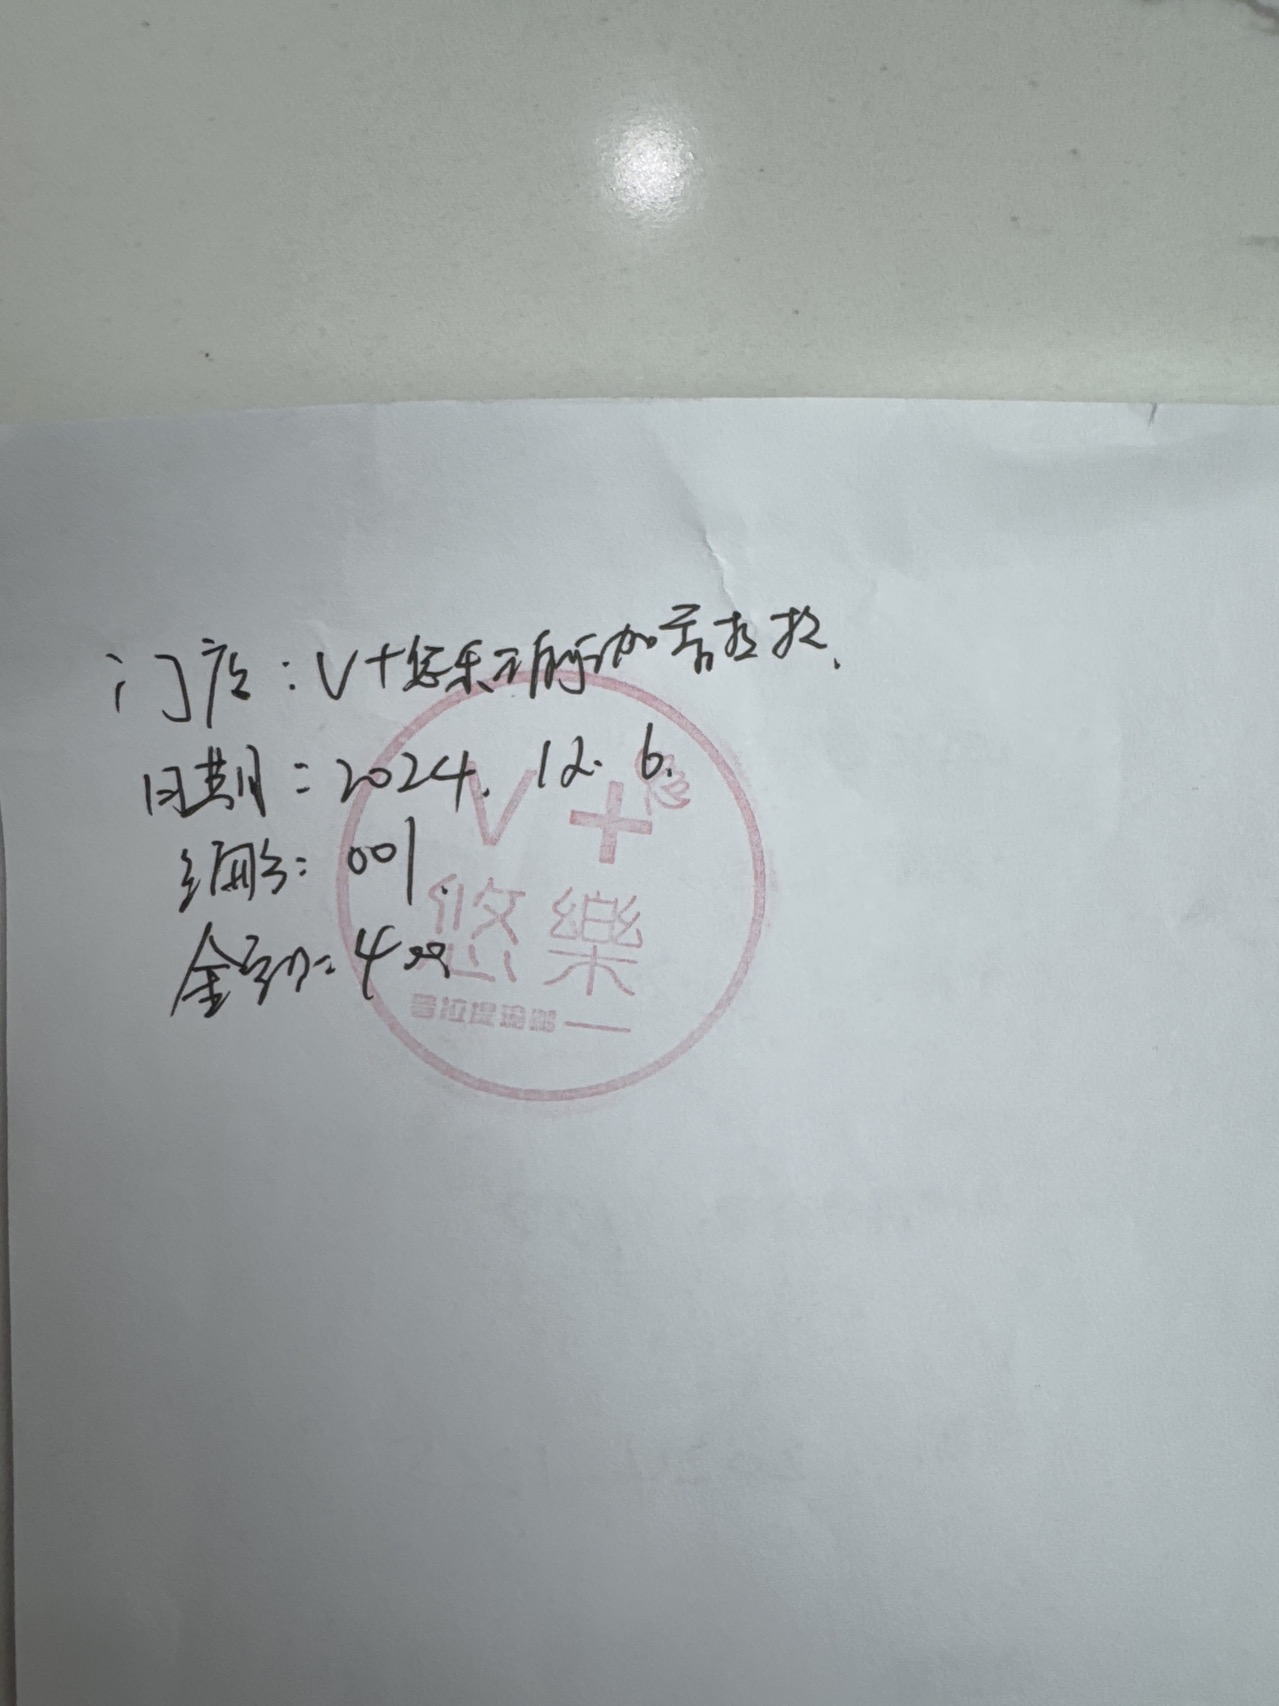 门店：V+悠乐瑜伽普拉提.
日期：2024.12.6.
编号：001
金额：400
V+
悠樂
普拉提瑜伽